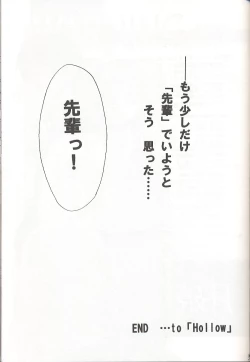 ――もう少しだけ
「先輩」でいようと
そう　思った……
先輩っ！
END　…to「Hollow」